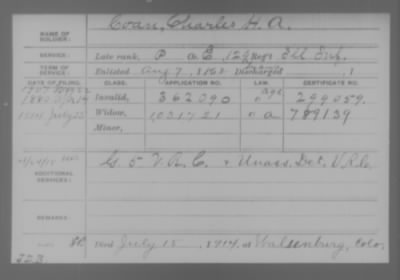 NAME OF SOLDIER: Coan, Charles H. A.
SERVICE: Late rank, P Co. E, 129 Reg't Ill Inf.
TERM OF SERVICE: Enlisted Aug 7, 1862 Discharged , 1
DATE OF FILING. CLASS. APPLICATION NO. CERTIFICATE NO.
1880 Invalid, 362090 299059.
July 25 Widow, 1031721 a 789139
Minor,
ADDITIONAL SERVICES: G 5 V.R.C. + Unass. Det. V.R.C.
REMARKS:
Died July 15, 1914, at Walsenburg, Colo.